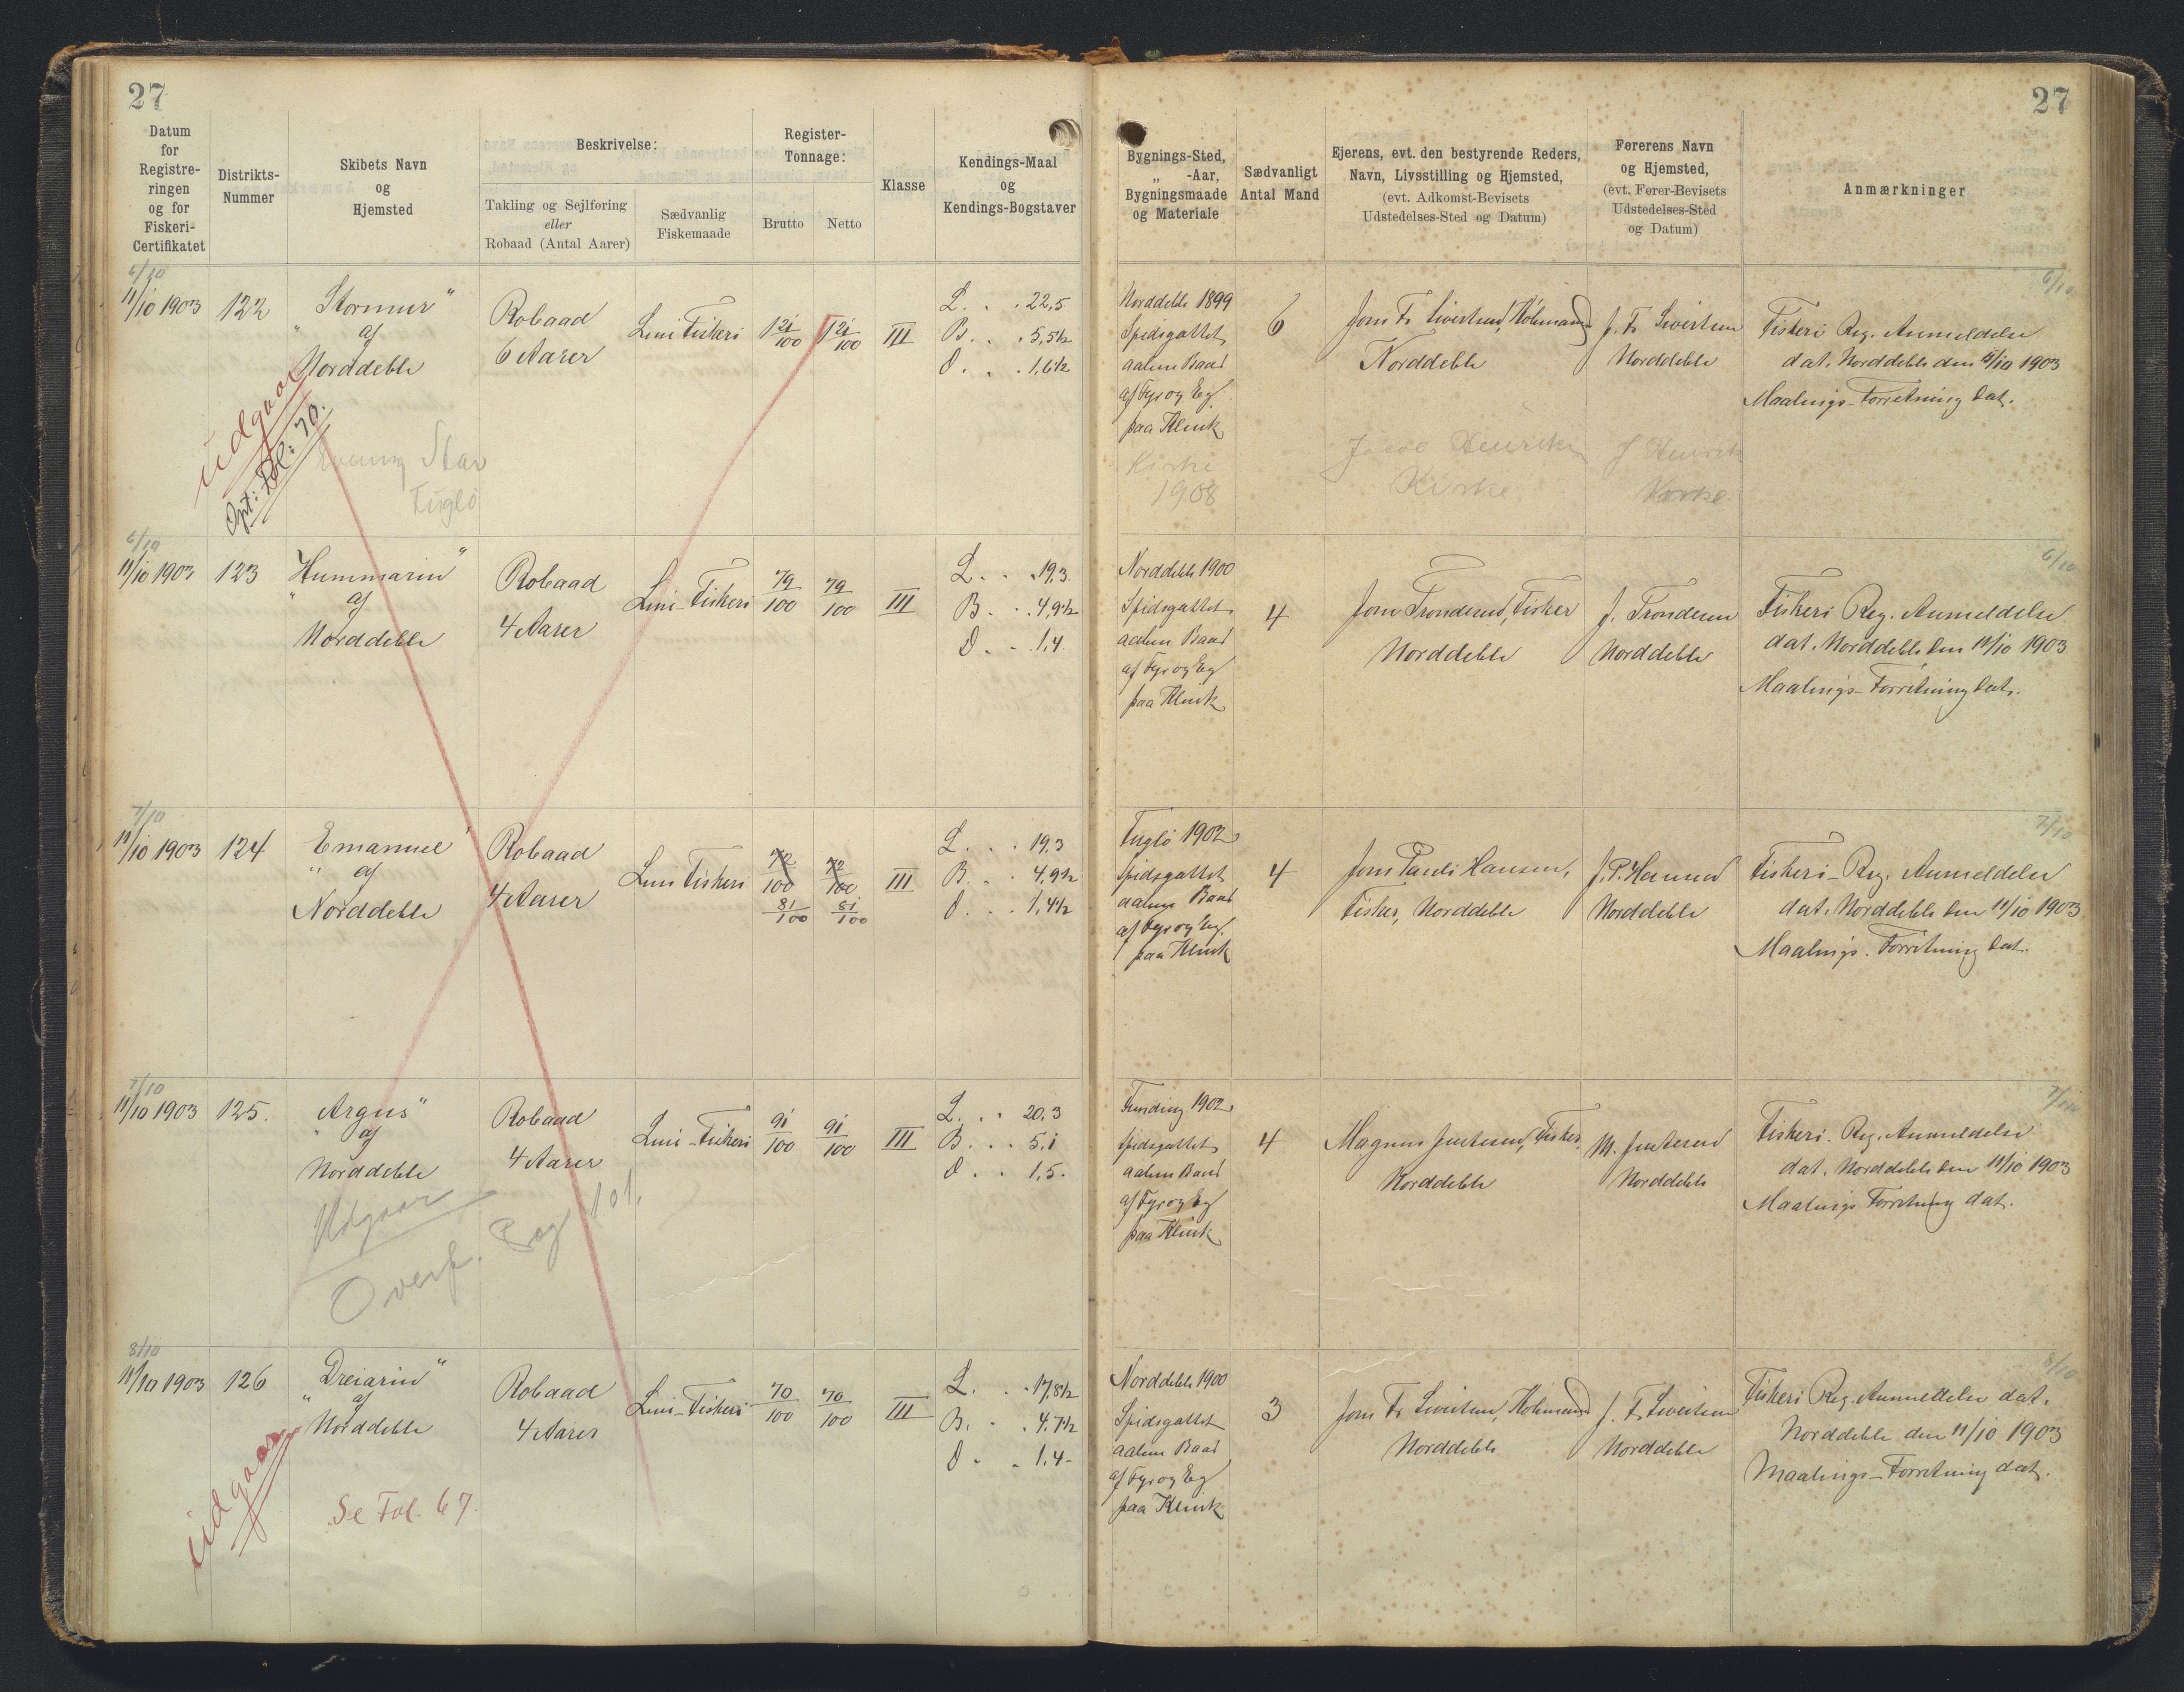 27
27
Datum
for
Registre-
ringen
og for
Fiskeri-
Certifikatet
Distrikts-
Nummer
Skibets Navn
og
Hjemsted
Beskrivelse:
Takling og Sejlføring
eller
Robaad (Antal Aarer)
Sædvanlig
Fiskemaade
Register-
Tonnage:
Brutto
Netto
Klasse
Kendings-Maal
og
Kendings-Bogstaver
Bygnings-Sted,
„ -Aar,
Bygningsmaade
og Materiale
Sædvanligt
Antal Mand
Ejerens, evt. den bestyrende Reders,
Navn, Livsstilling og Hjemsted,
(evt. Adkomst-Bevisets
Udstedelses-Sted og Datum)
Førerens Navn
og Hjemsted,
(evt. Fører-Bevisets
Udstedelses-Sted
og Datum)
Anmærkninger
6/10
11/10 1903
122
"Stormur"
af
Norddeble
Robaad
6 Aarer
Line Fiskeri
1 21/100
1 21/100
III
L. . . 22,5
B. . . 5,5½
D. . . 1,6½
Norddeble 1899
Spidsgattet
aaben Baad
af Fyr og Eg
paa Klink
6
Norddeble
Norddeble
6/10
Fiskeri Reg. Anmeldelse
dat. Norddeble den 11/10 1903
Maalings-Forretning dat.
udgaar
Opt: Fol: 70.
Evening Star
Fuglø
Kirke
1908
Kirke
Kirke
6/10
11/10 1903
123
"Hummarin"
af
Norddeble
Robaad
4 Aarer
Line-Fiskeri
79/100
79/100
III
L. . . 19,3
B. . . 4,9½
D. . . 1,4.
Norddeble 1900
Spidsgattet
aaben Baad
af Fyr og Eg
paa Klink
4
Norddeble
Norddeble
6/10
Fiskeri Reg. Anmeldelse
dat. Norddeble den 11/10 1903
Maalings-Forretning dat.
7/10
11/10 1903
124
"Emanuel"
af
Norddeble
Robaad
4 Aarer
Line Fiskeri
72/100
81/100
72/100
81/100
III
L. . . 19,3
B. . . 4,9½
D. . . 1,4½
Fuglø 1902
Spidsgattet
aaben Baad
af Fyr og Eg.
paa Klink
4
Jons Pauli Hansen,
Fisker, Norddeble
J. P. Hansen
Norddeble
7/10
Fiskeri-Reg. Anmeldelse
dat. Norddeble den 11/10 1903
Maalings-Forretning dat.
7/10
11/10 1903
125.
"Argus"
af
Norddeble
Robaad
4 Aarer
Line-Fiskeri
91/100
91/100
III
L. . . 20,3
B. . . 5,1
D. . . 1,5.
Funding 1902
Spidsgattet
aaben Baad
af Fyr og Eg
paa Klink
4
Magnus Joensen, Fisker,
Norddeble
M. Joensen
Norddeble
7/10
Fiskeri. Reg. Anmeldelse
dat. Norddeble den 11/10 1903
Maalings Forretning dat.
Udgaar
Overf. Pag 101.
8/10
11/10 1903
126
"Dreiarin"
af
Norddeble
Robaad
4 Aarer
Line-Fiskeri
70/100
70/100
III
L. . . 17,8½
B. . . 4,7½
D. . . 1,4-
Norddeble 1900
Spidsgattet
aaben Baad
af Fyr og Eg
paa Klink
3
Norddeble
Norddeble
8/10
Fiskeri Reg. Anmeldelse dat.
Norddeble den 11/10 1903
Maalings-Forretning dat.
udgaar
Se Fol. 67.